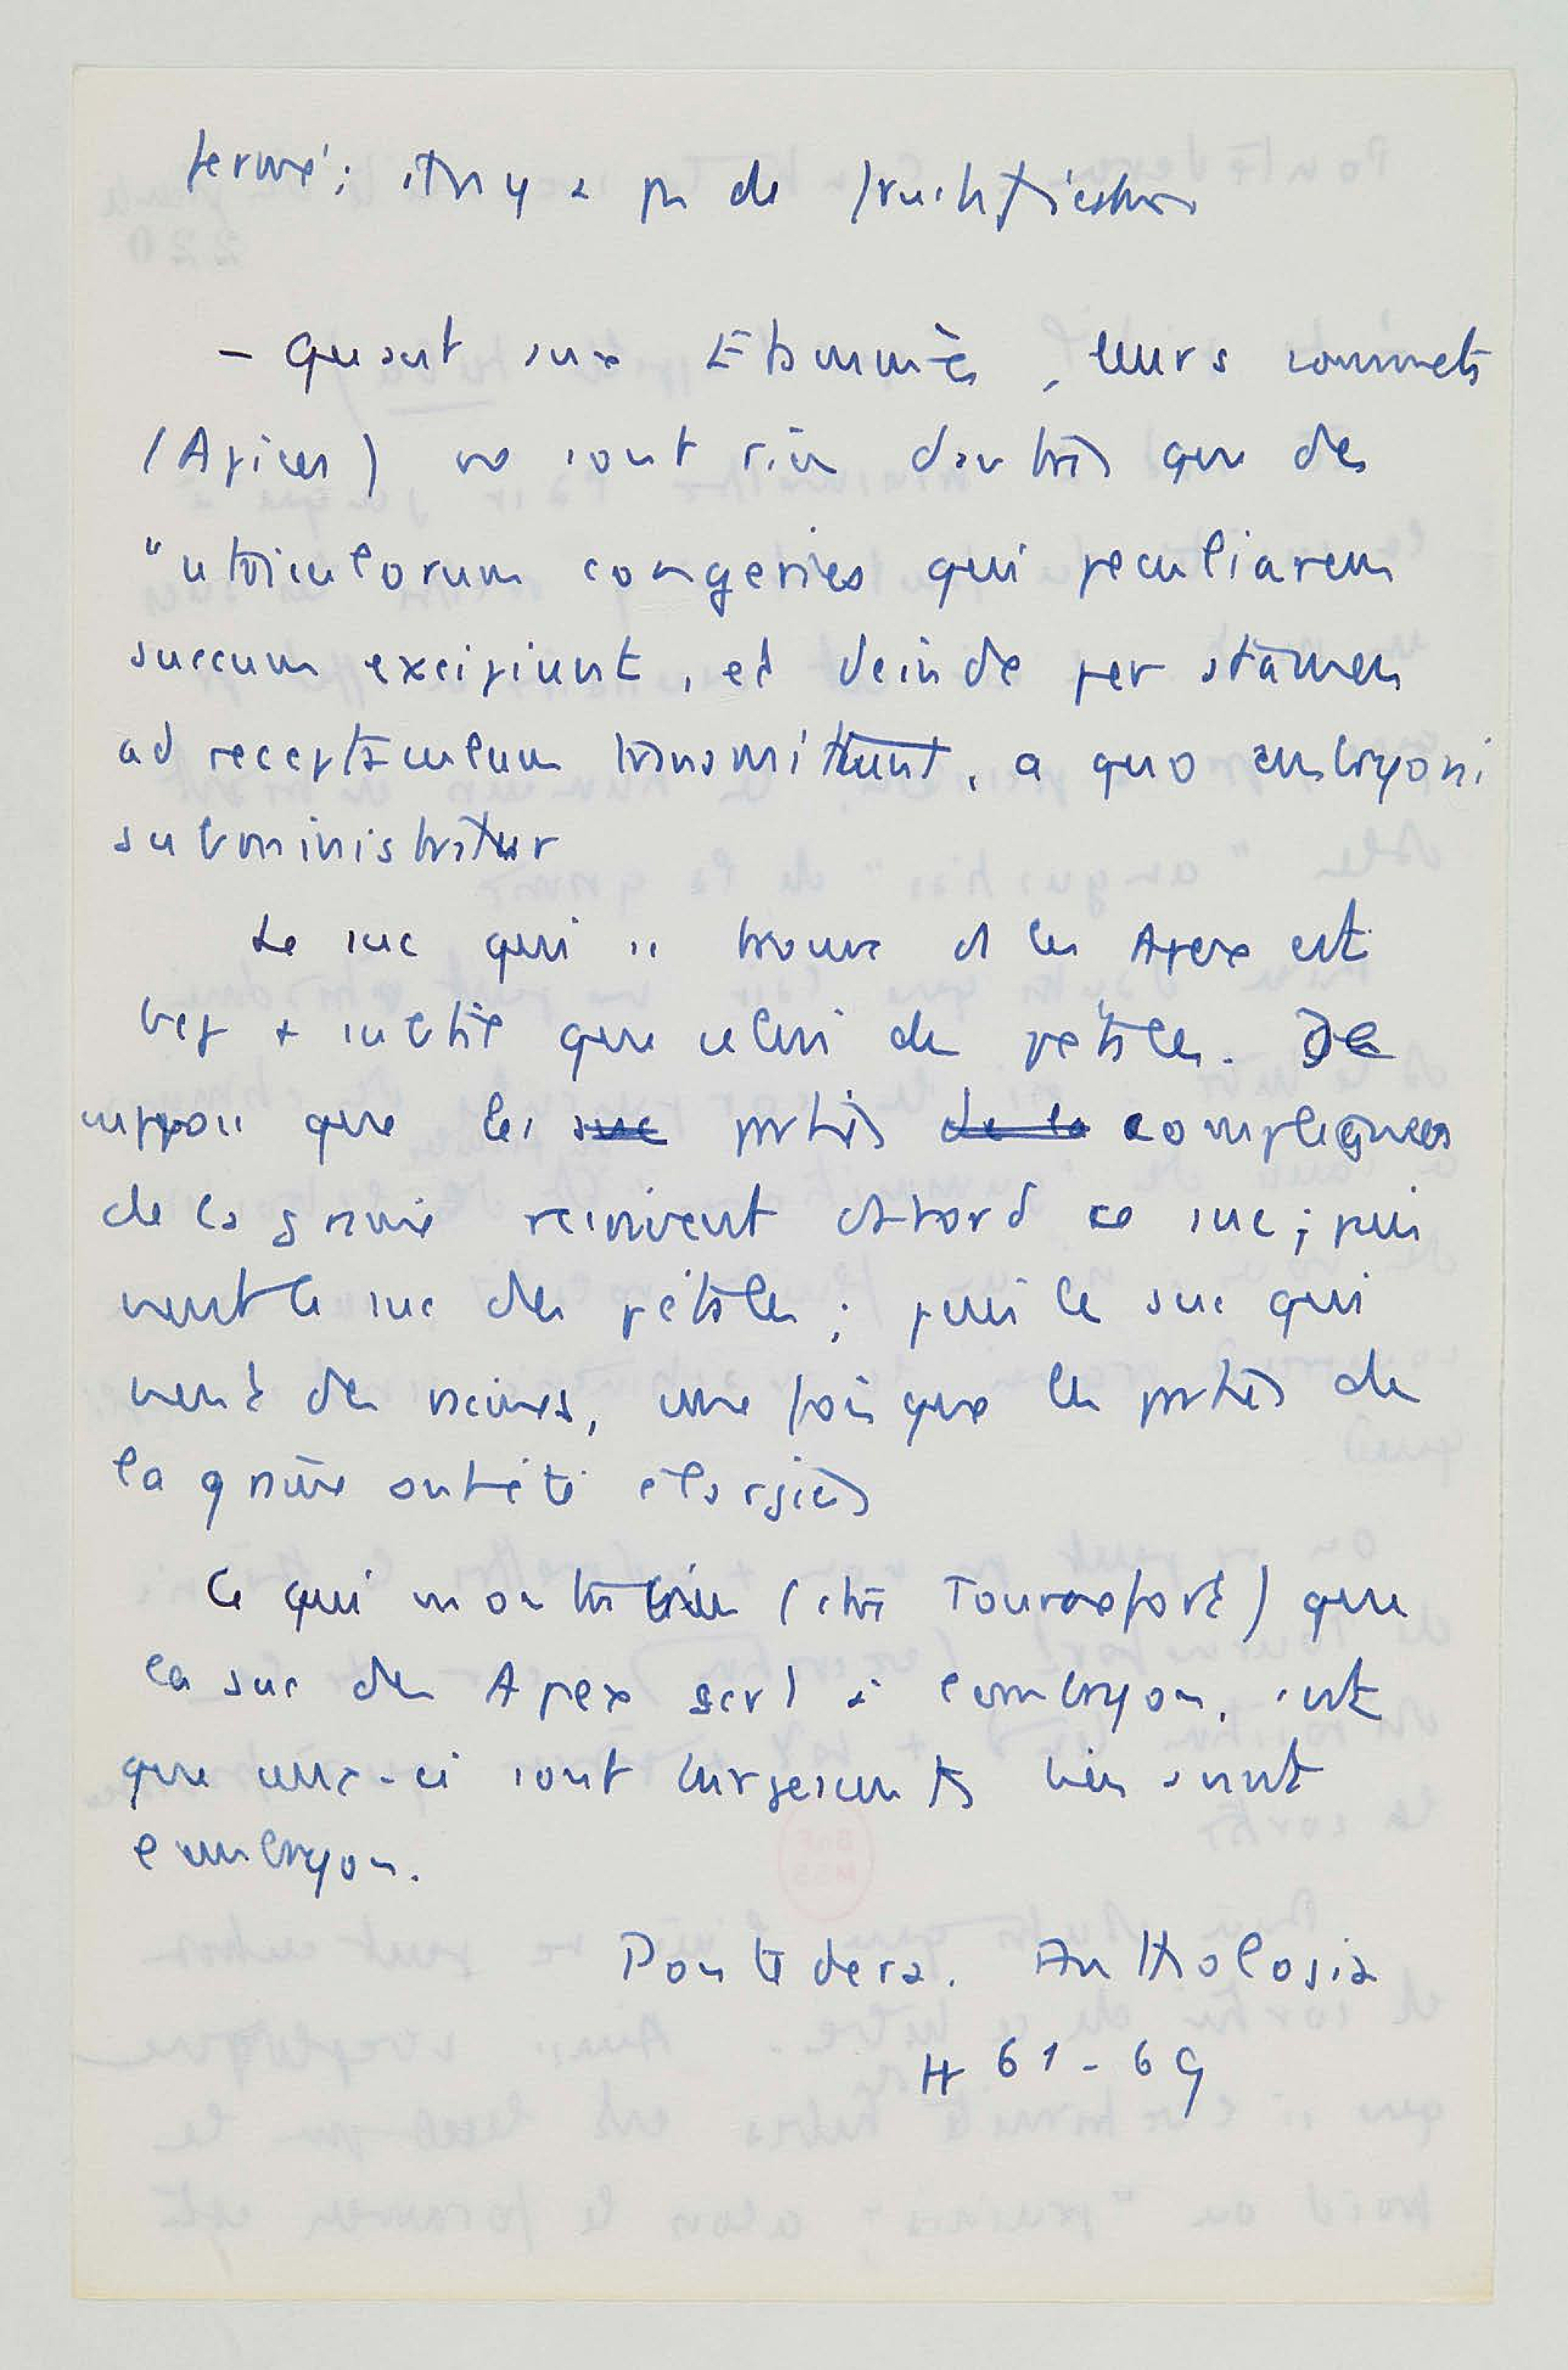 fermé ; il n'y a pas de fructification
– Quant aux Etamines, leurs sommets
(Apices) ne sont rien d'autres que des
"utriculorum congeries qui peculiarem
succum excipiunt, et deinde per stamen
ad receptaculum transmittunt, a quo embryoni
subministratur
Le suc qui se trouve ds les Apex est
bcp + subtil que celui des pétales. Je
suppose que les suc parties de la compliquées
de la graine reçoivent d'abord ce suc ; puis
vient le suc des pétales ; puis le suc qui
vient des racines, une fois que les parties de
la graine ont été élargies
Ce qui montre bien (cite Tournefort) que
le suc des Apex sert à l'embryon, c'est
que ceux-ci sont turgescents bien avant
embryon.
Pontedera. Anthologia
61-69